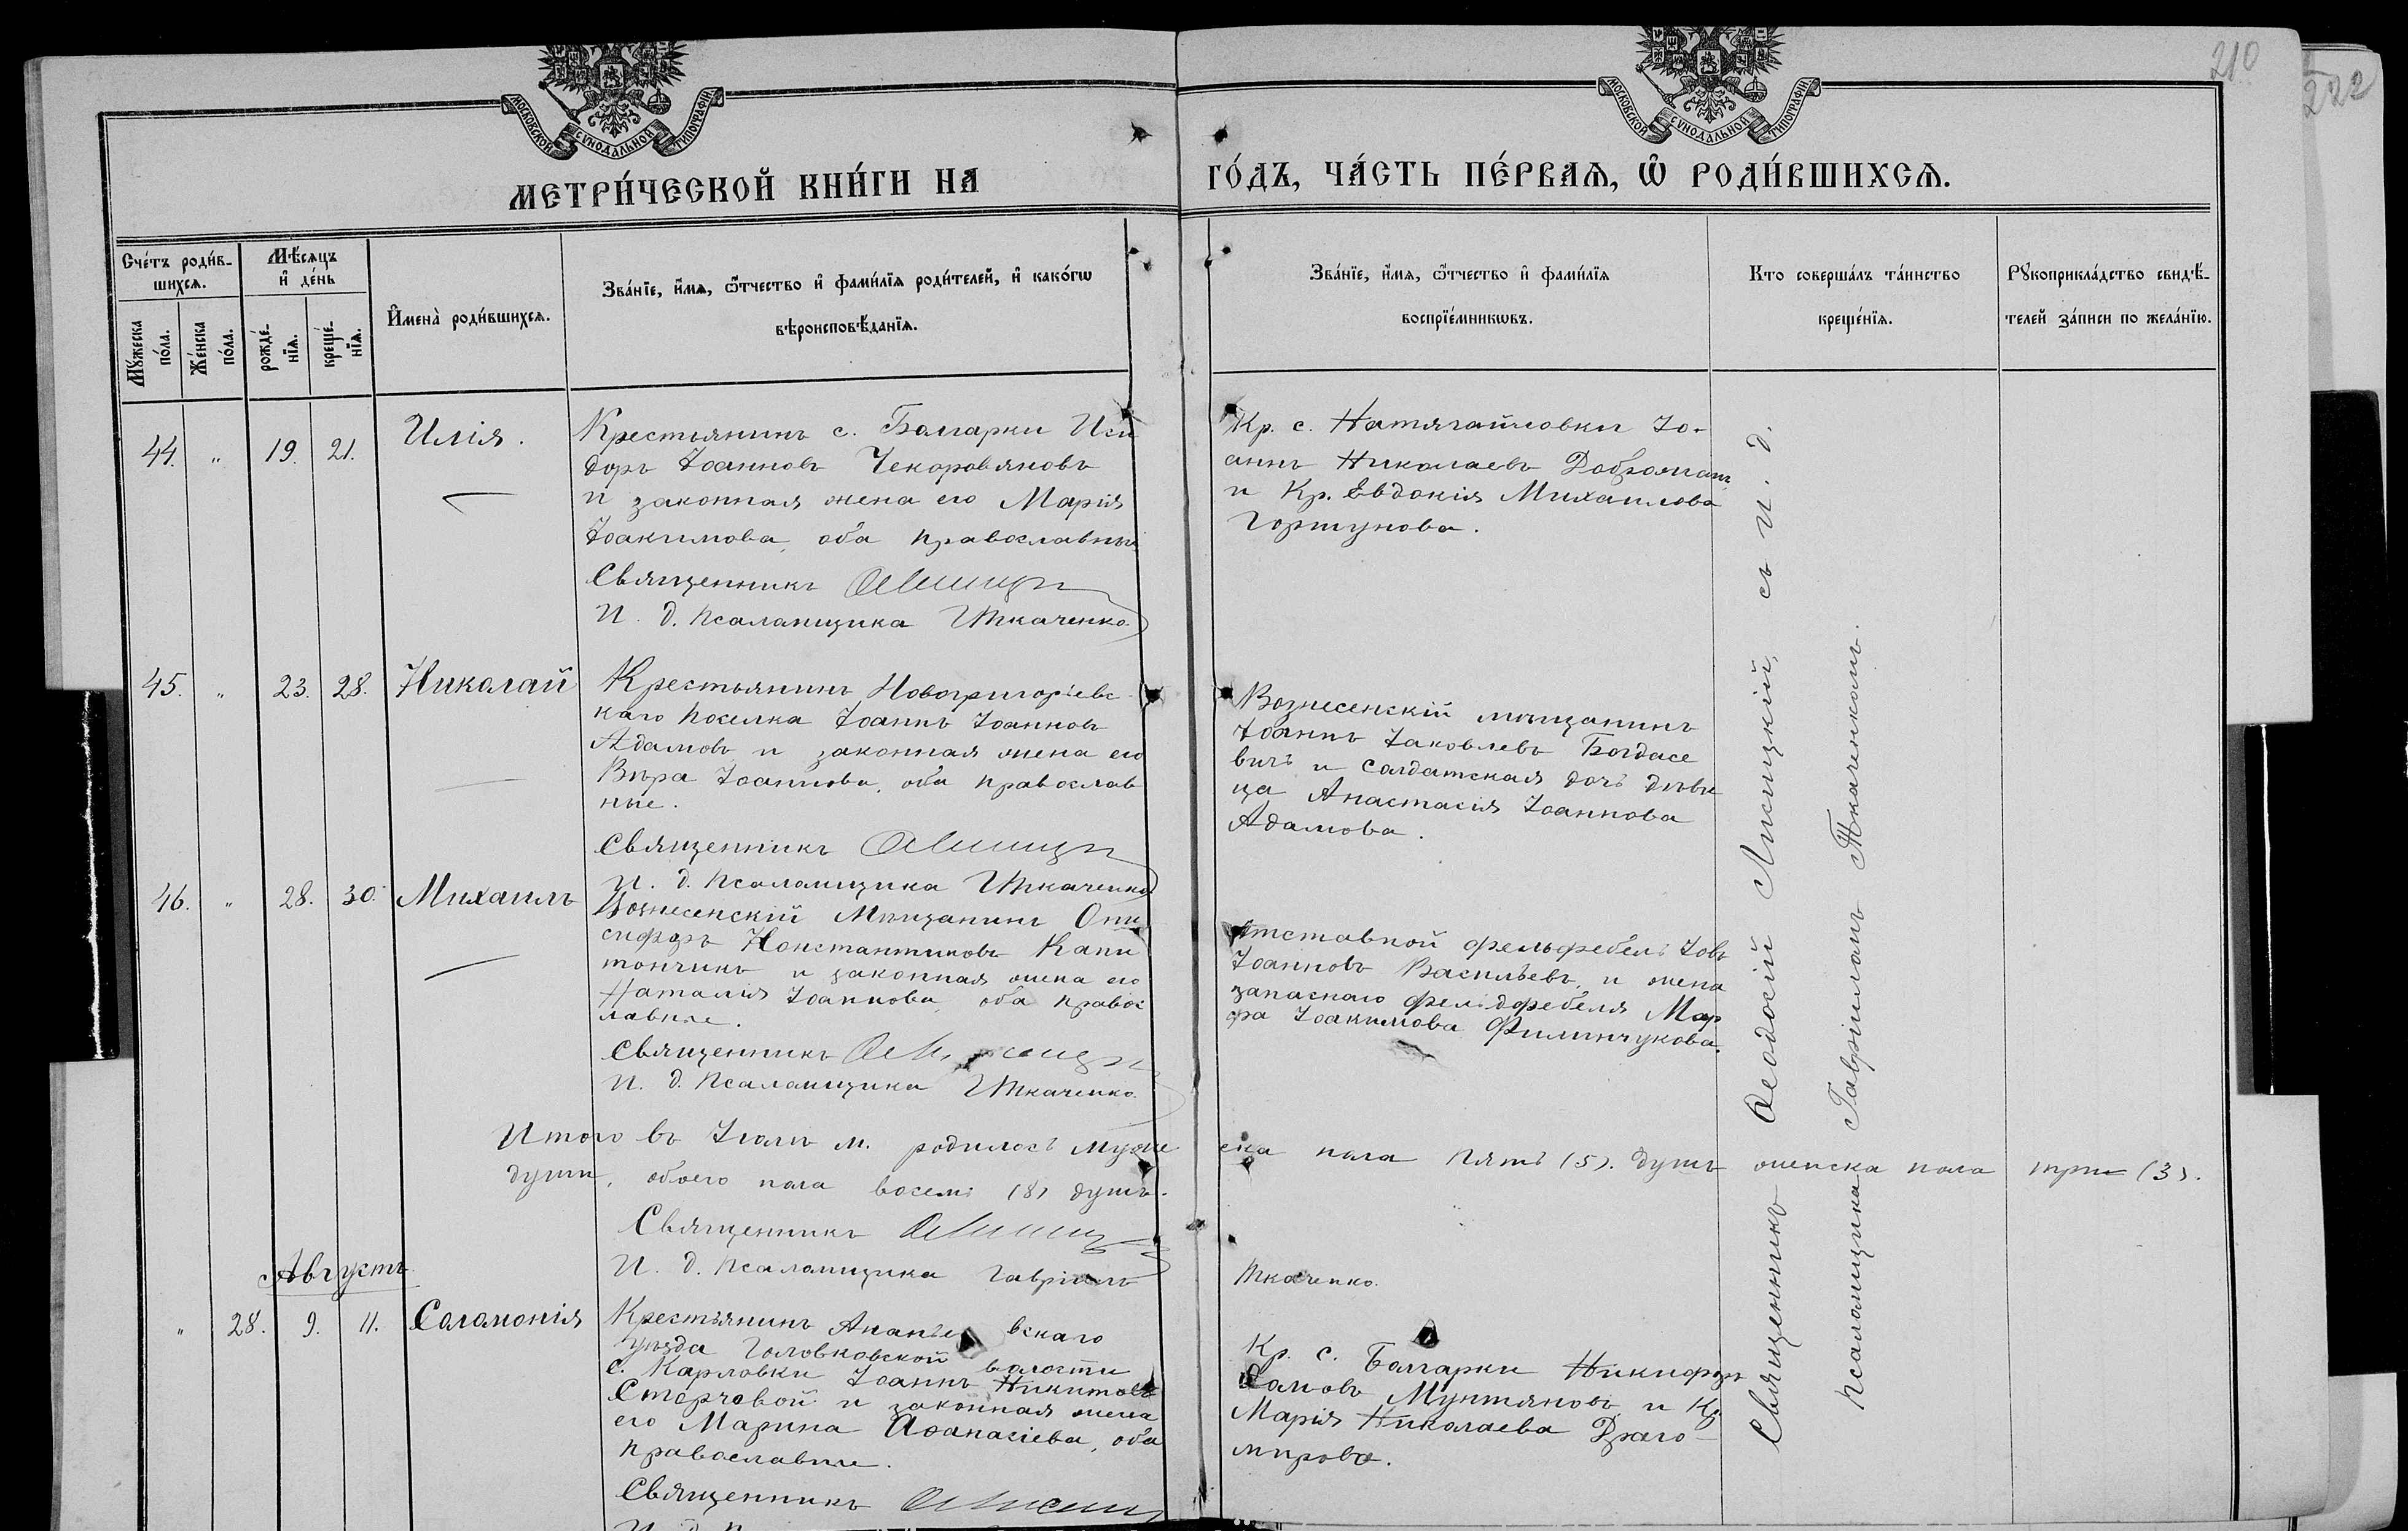 210
222
МОСКОВСКОЙ СѴНОДАЛЬНОЙ ТИПОГРАФІИ
МОСКОВСКОЙ СѴНОДАЛЬНОЙ ТИПОГРАФІИ
МЕТРИ́ЧЕСКОЙ КНИ́ГИ НА ГО́ДЪ, ЧА́СТЬ ПЕ́РВАѦ, Ѡ҆ РОДИ́ВШИХСѦ.
Сче́тъ роди́в-
шихсѧ.
Мꙋ́жеска
по́ла.
Же́нска
по́ла.
Мѣ́сѧцъ
и҆ де́нь
рожде́-
нїѧ.
креще́-
нїѧ.
И҆мена̀ роди́вшихсѧ.
Зва́нїе, и҆́мѧ, ѻ҆́тчество и҆ фами́лїѧ роди́телей, и҆ како́гѡ
вѣроисповѣ́данїѧ.
Зва́нїе, и҆́мѧ, ѻ҆́тчество и҆ фами́лїѧ
воспрїе́мникѡвъ.
Кто соверша́лъ та́инство
креще́нїѧ.
Рꙋкоприкла́дство свидѣ́-
телей за́писи по жела́нїю.
44. " 19. 21. Илія.
Крестьянинъ с. Болгарки Иси
доръ Іоанновъ Чекоровяновъ
и законная жена его Марія
Іоакимова, оба православные
Священникъ
И. д. псаломщика Ткаченко
Кр. с. Натягайловки Іо-
аннъ Николаевъ
и Кр. Евдокія Михаилова
Горшунова.
45. " 23. 28. Николай
Крестьянинъ Новогригорьевс
каго поселка Іоаннъ Іоанновъ
Адамовъ и законная жена его
Вѣра Іоаннова, оба православ
ные.
Священникъ
И. д. псаломщика Ткаченко
Вознесенскій мѣщанинъ
Іоаннъ Іаковлевъ Богдасе
вичъ и солдатская дочь дѣви
ца Анастасія Іоаннова
Адамова.
46. " 28. 30. Михаилъ
Вознесенскій Мѣщанинъ Они
сифоръ Константиновъ Капи
тончикъ и законная жена его
Наталія Іоаннова, оба правос
лавные.
Священникъ
И. д. псаломщика Ткаченко
Отставной фельфебель Іовъ
Іоанновъ Васильевъ, и жена
запаснаго фельдфебеля Мар
фа Іоакимова Филинчукова.
Итого въ Іюлѣ м. родилось муже ска пола пять (5). душъ женска пола три (3).
души, обоего пола восемь (8) душъ.
Священникъ
И. д. псаломщика Гавріилъ Ткаченко.
Августъ
" 28. 9. 11. Соломонія
Крестьянинъ Ананье вскаго
уѣзда Головковской волости
с. Карловки Іоаннъ Никитовъ
Сторчовой и законная жена
его Марина Аѳанасіева, оба
православные.
Священникъ
Кр. с. Болгарки Никифоръ
Мунтяновъ и Кр.
Марія Николаева Драго-
мирова.
Священникъ Ѳеодосій Лисицкій, съ и. д.
псаломщика Гавріиломъ Ткаченкомъ.